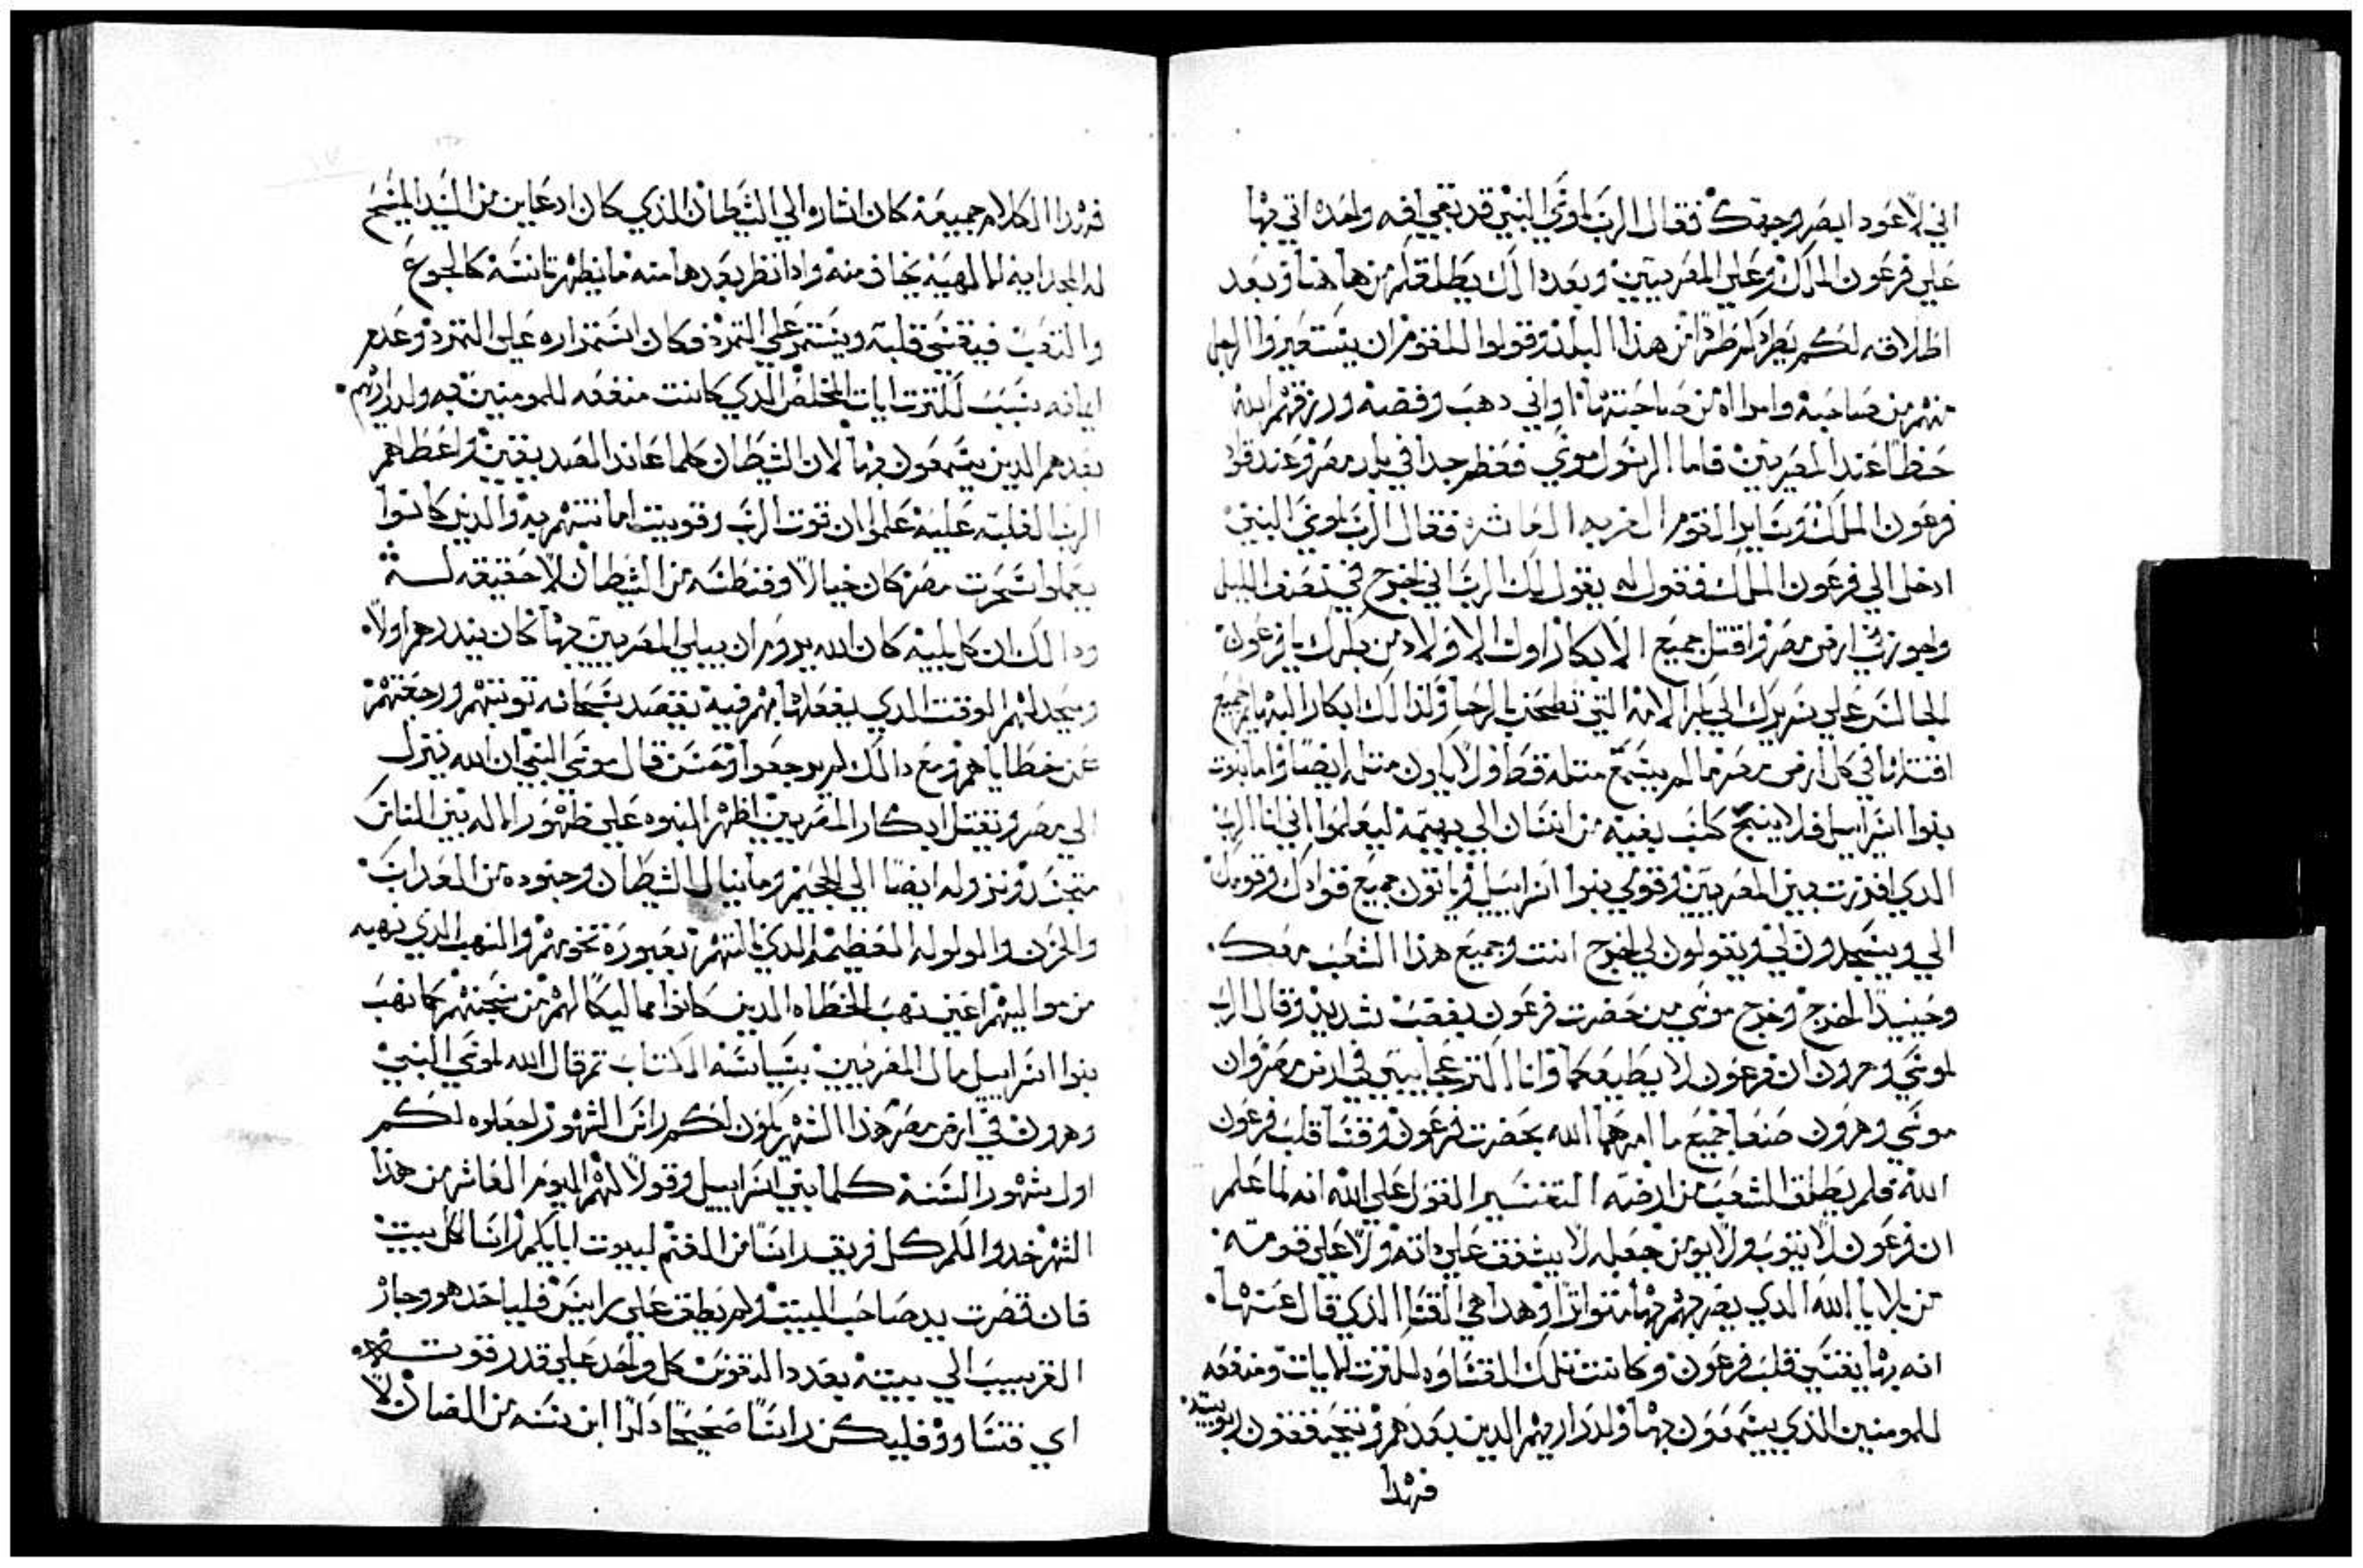 اني لا اعود ابصر وجهك فقال الرب لموسي النبي قد بقي افه واحده اتي بها
علي فرعون الملك وعلي المصريين وبعد ذالك يطلقكم من هاهنا وبعد
اطلاقه لكم يطردكم طردًا من هذا البلد وقولوا للقوم ان يستعيروا الرجل
منهم من صاحبه وامراه من صاحبتها اواني دهب وفضه ورزقهم الله
حظًا عند المصريين فاما الرسول موسي فعظم جدا في بلد مصر وعند قواد
فرعون الملك وساير القوم الضربه العاشره فقال الرب لموسي النبي
ادخل الي فرعون الملك فقول له يقول لك الرب اني اخرج في نصف الليل
واجوز في ارض مصر واقتل جميع الابكار اول الاولاد من بكرك يا فرعون
الجالس علي سريرك الي بكر الامه التي تطحن بالرحا وكذالك ابكار البهايم جميع
اقتلها في كل ارض مصر ما لم يسمع مثله قط ولا يكون مثله ايضًا واما بيوت
بنوا اسراييل فلا ينبح كلب بفيه من انسان الي بهيمه ليعلموا اني انا الرب
الدي افرزت بين المصريين وقومي بنوا اسراييل وياتون جميع قوادك وقومك
الي ويسجدون لي ويقولون لي اخرج انت وجميع هذا الشعب معك
وحينيدًا اخرج وخرج موسي من حضرت فرعون بغضب شديد وقال الرب
لموسي وهرون ان فرعون لا يطيعكما وانا اكتر عجايبي في ارض مصر وان
موسي وهرون صنعا جميع ما امرهما الله بحضرت فرعون وقسا قلب فرعون
الله فلم يطلق الشعب من ارضه التفسير القول علي الله انه لما علم
ان فرعون لا يتوب ولا يومن جعله لا يشفق علي داته ولا علي قومه
من بلايا الله الدي يضربهم بها متواترًا وهدا هي القسا الذي قال عنها
انه بها يقسي قلب فرعون وكانت تلك القساوه لكترت الايات ومنفعه
للمومنين الذي يسمعون بها ولدراريهم الدين بعدهم وتتحققون ربوبيته
فهدا
فهدا الكلام جميعه كان اشاره الي الشيطان الذي كان ادعاين من السيد المسيح
والتعب فيقسي قلبه ويستمر علي التمرد فكان استمراره علي التمرد وعدم
ايمانه بسبب لكترت ايات المخلص الدي كانت منفعه للمومنين به ولدراريهم
بعدهم الدين يسمعون بها لان الشيطان كلما عاند الصديقين واعطاهم
الرب الغلبه عليه علموا ان قوت الرب وقويت امانتهم به والدين كانوا
يعملوا سحرت مصر كان خيالًا وقنطسه من الشيطان لا حقيقه له
ودالك ان كل بليه كان الله يروم ان يبلي المصريين بها كان ينذرهم اولًا
ويحد لهم الوقت الدي يفعلها بهم فيه بقصد سبحانه توبتهم ورجعتهم
عن خطاياهم ومع دالك لم يرجعوا ومن قال موسي النبي ان الله ينزل
الي مصر ويقتل ابكار المصريين اظهر النبوه علي ظهور الاله بين الناس
متجسد ونزوله ايضًا الي الجحيم وما ينال الشيطان وجنوده من العداب
والحزن والولوله العظيمه الدي نالتهم بعبوره نحوهم والنهب الدي نهبه
من مواليهم اعني نهب الخطاه الدين كانوا مماليكًا لهم من سجنهم كما نهب
بنوا اسراييل مال المصريين بسياسة الكتاب تم قال الله لموسي النبي
وهرون في ارض مصر هذا الشهر يكون لكم راس الشهور اجعلوه لكم
اول شهور السنة كلما بني اسراييل وقولا لهم اليوم العاشر من هذا
الشهر خدوا لكم كل فريق راسًا من الغنم لبيوت ابايكم راسًا لكل بيت
فان قصرت يد صاحب البيت ولم يطق علي راس فلياخد هو وجاره
القريب الي بيته بعدد النفوس كل واحد علي قدر قوته
اي قتساووٌ فليكن راسًا صحيحًا دكرًا ابن سنه من الضان لا